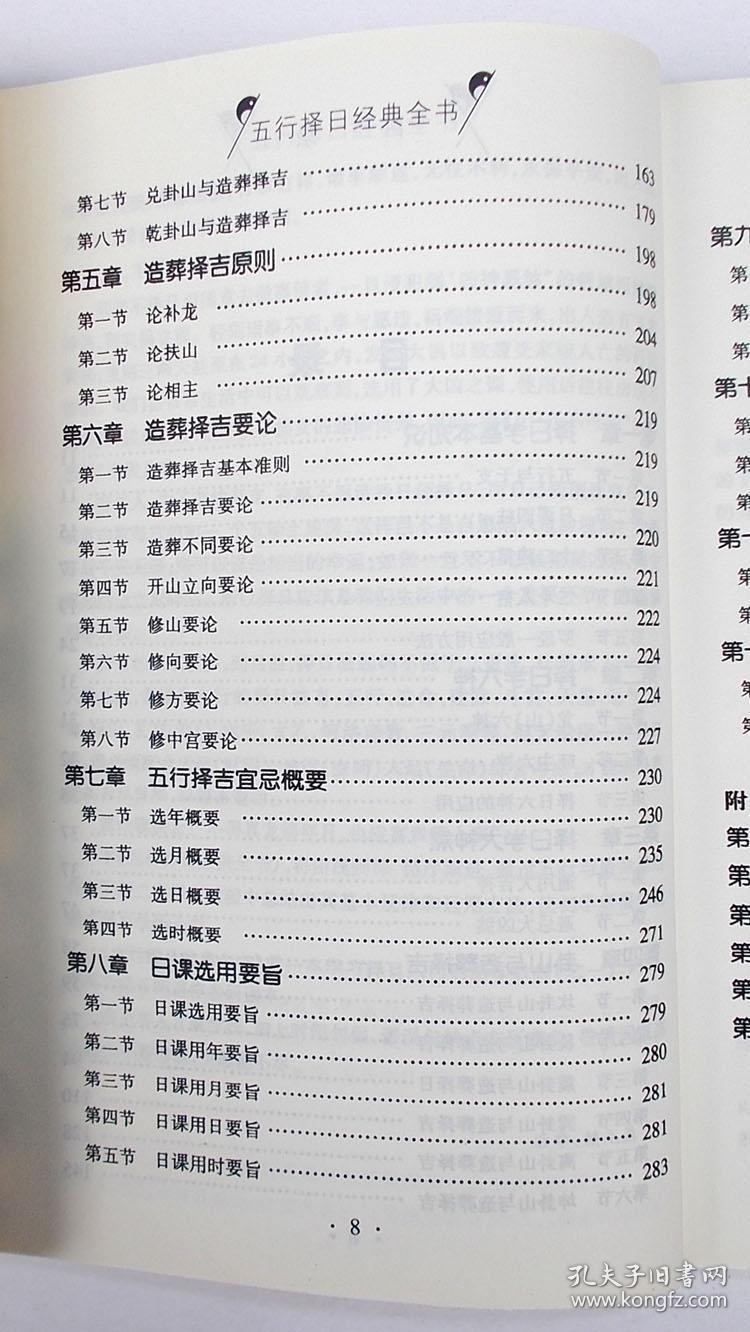 五行择日经典全书
第七节 兑卦山与造葬择吉 163
第八节 乾卦山与造葬择吉 179
第五章 造葬择吉原则 198
第一节 论补龙 198
第二节 论扶山 204
第三节 论相主 207
第六章 造葬择吉要论 219
第一节 造葬择吉基本准则 219
第二节 造葬择吉要论 219
第三节 造葬不同要论 220
第四节 开山立向要论 221
第五节 修山要论 222
第六节 修向要论 224
第七节 修方要论 224
第八节 修中宫要论 227
第七章 五行择吉宜忌概要 230
第一节 选年概要 230
第二节 选月概要 235
第三节 选日概要 246
第四节 选时概要 271
第八章 日课选用要旨 279
第一节 日课选用要旨 279
第二节 日课用年要旨 280
第三节 日课用月要旨 281
第四节 日课用日要旨 281
第五节 日课用时要旨 283
· 8 ·
第九
第
第
第
第十
第
第
第
第十
第
第
第十
第
第
附
第
第
第
第
第
第
孔夫子旧书网
www.kongfz.com